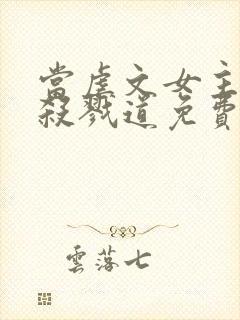 當虐文女主
殺戮道免費
雲落七